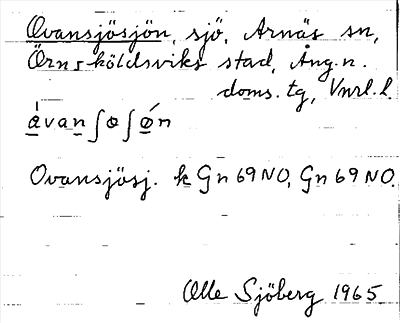 Ovansjösjön, sjö, Arnäs sn,
Örnsköldsviks stad, Ång. n.
doms. tg, Vnrl. l.
Ovansjösj. k Gn 69 NO, Gn 69 NO.
Olle Sjöberg 1965